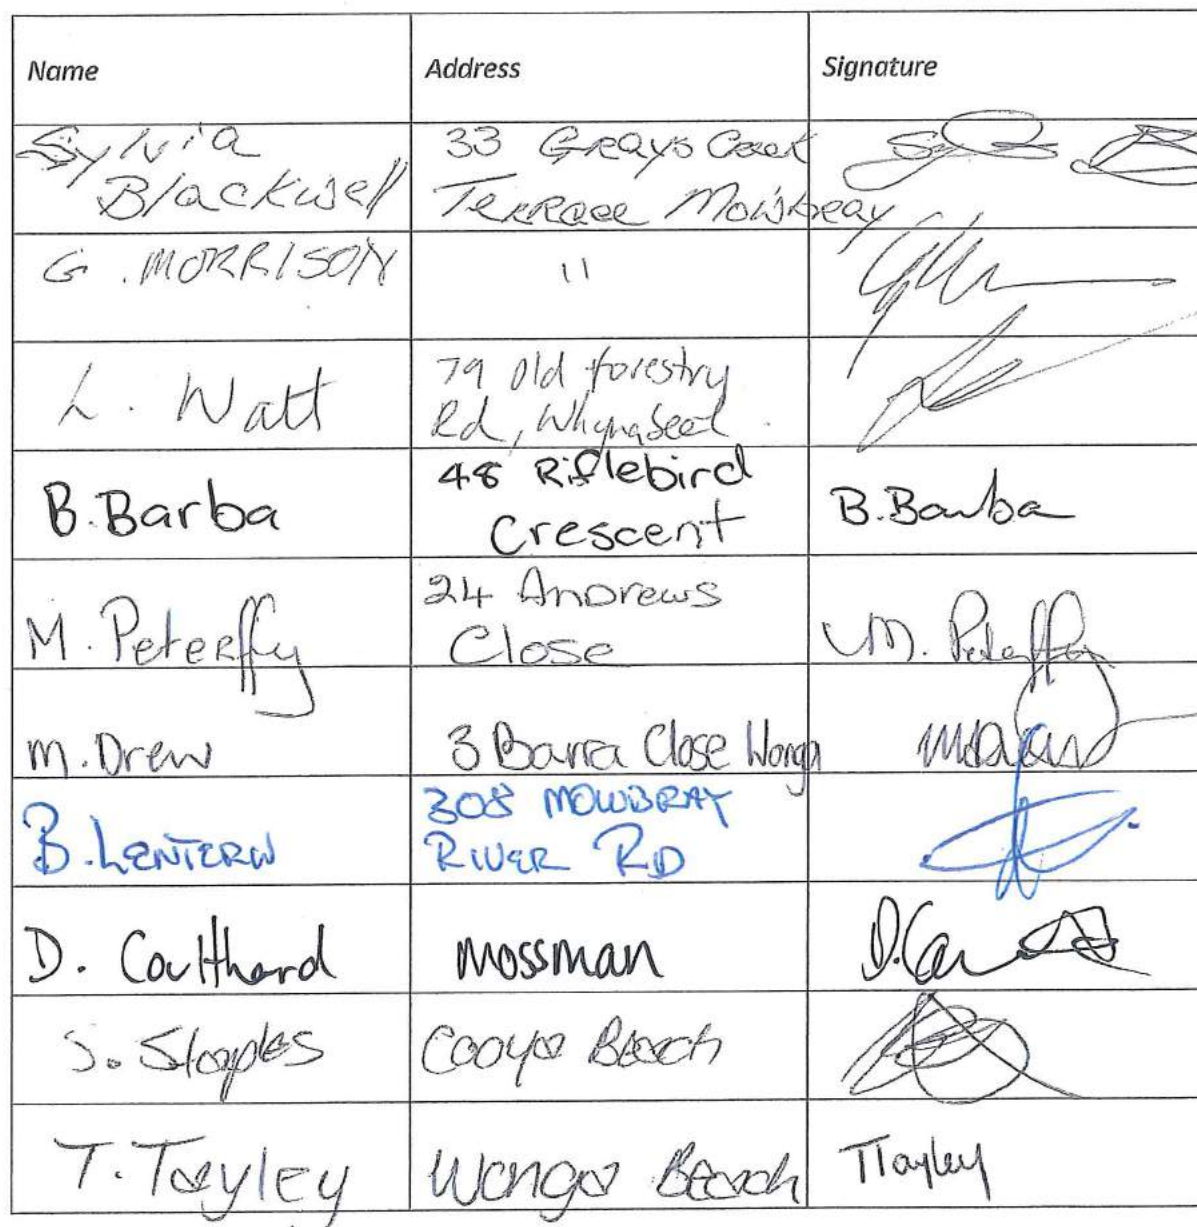 Name Address Signature
Sylvia 33 Grays Creek
Blackwell Terrace Mowbray
G. MORRISON 11
L. Watt 79 Old forestry
Rd, Whyanbeel.
B. Barba 48 Riflebird B. Barba
Crescent
M. Peterffy 24 Andrews M. Peterffy
Close
M. Drew 3 Barra Close Wonga
B. LENTERN 308 MOWBRAY
RIVER RD
D. Coulthard Mossman
S. Staples Cooya Beach
T. Tayley Wonga Beach TTayley